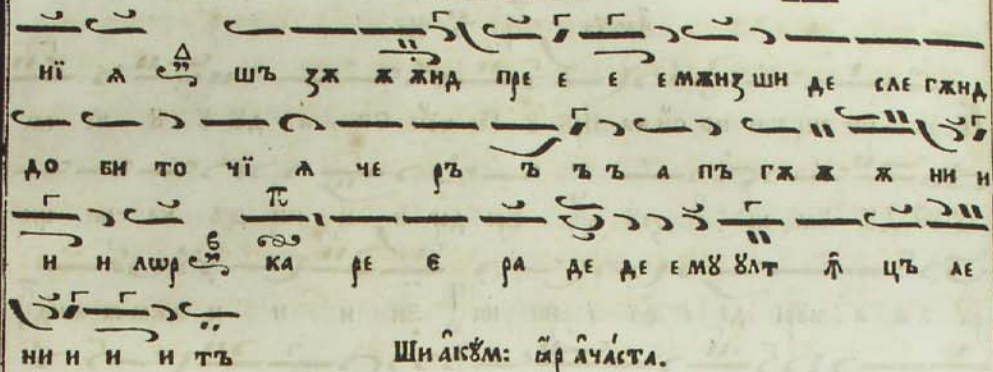 нїѧ шъ зѫ ѫ ѫнд пре е е е мѫнз ши де сле гѫнд
до би то чї ѧ че ръ ъ ъ ъ а пъ гѫ ѫ ѫ ни и
и и лѡр ка ре є ра де де е мꙋ ꙋлт ꙟ цъ ле
ни и и и тъ Ши а҆кꙋ́м: ꙗ҆р а҆ча́ста.